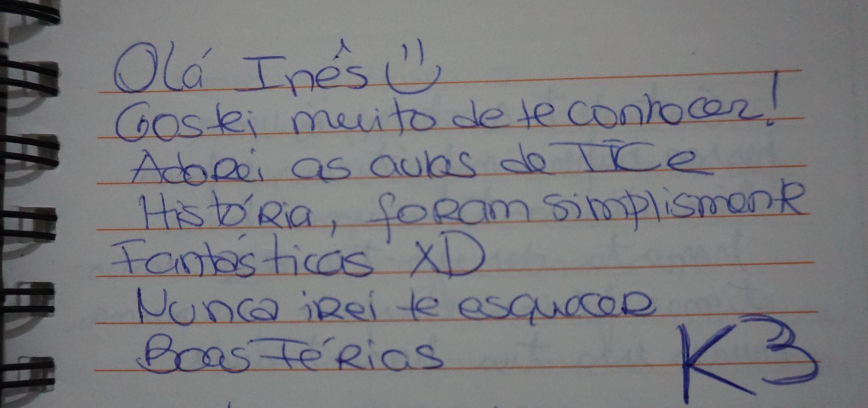 Olá Inês
Gostei muito de te conhocer!
Adorei as aulas de TIC e
História, foram simplismente
Fantásticas XD
Nunca irei te esquecer
Boas Férias
K3